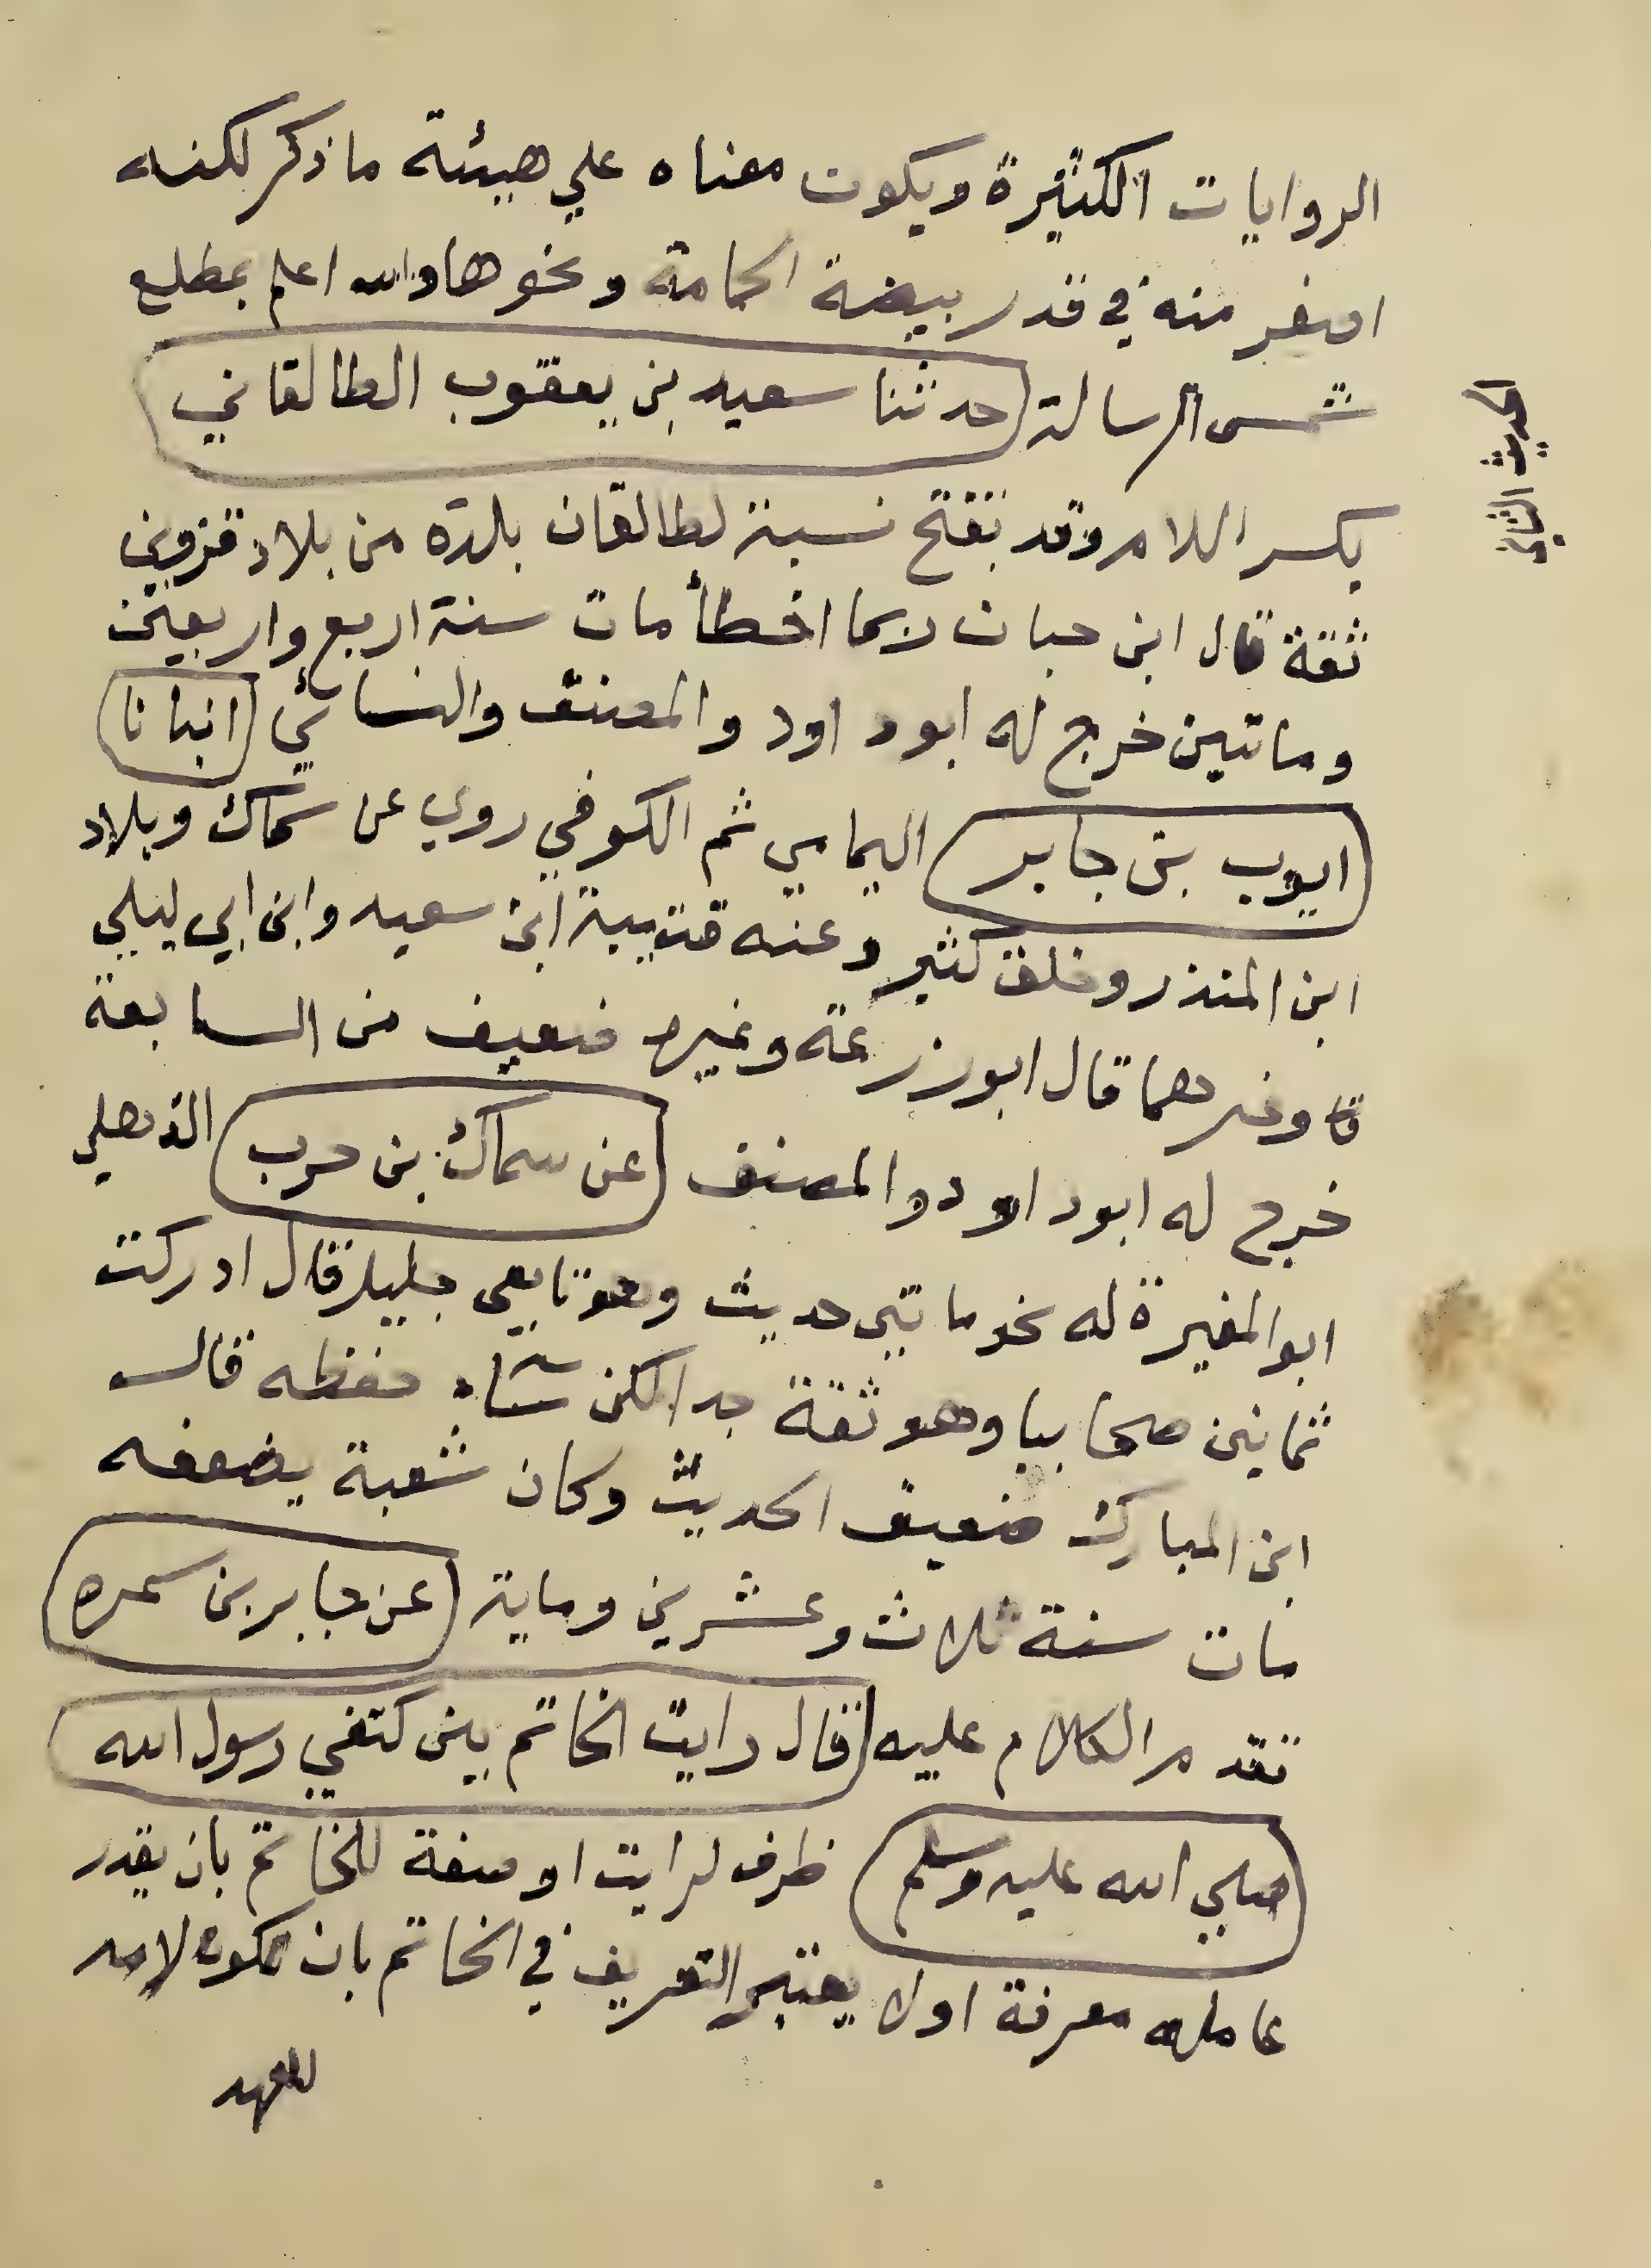 الروايات الكثيرة ويكون معناه علي هيئة ما ذكر لكنه
اصغر منه في قدر بيضة الحمامة ونحوها والله اعلم بمطلع
شمس الرسالة حدثنا سعيد بن يعقوب الطالقاني
بكسر اللام وقد تفتح نسبة لطالقان بلدة من بلاد قزوين
ثقة قال ابن حبان ربما اخطأ مات سنة اربع واربعين
وماتين خرج له ابو داود والمصنف والنسائي انبانا
ايوب بن جابر اليمامي ثم الكوفي روي عن سماك وبلاد
ابن المنذر وخلق كثير وعنه قتيبة ابن سعيد وابن ابي ليلي
وغيرهما قال ابو زرعة وغيره ضعيف من السابعة
خرج له ابو داود والمصنف عن سماك بن حرب الذهلي
ابو المغيرة له نحو ماتين حديث وهو تابعي جليل قال ادركت
ثمانين صحابيا وهو ثقة جدا لكن ساء حفظه قال
ابن المبارك ضعيف الحديث وكان شعبة يضعفه
مات سنة ثلاث وعشرين وماية عن جابر بن سمره
تقدم الكلام عليه قال رايت الخاتم بين كتفي رسول الله
صلي الله عليه وسلم ظرف لرايت او صفة للخاتم بان يقدر
عامله معرفة اولا يعتبر التعريف في الخاتم بان تكون لامه
للعهد
الحديث الثاني